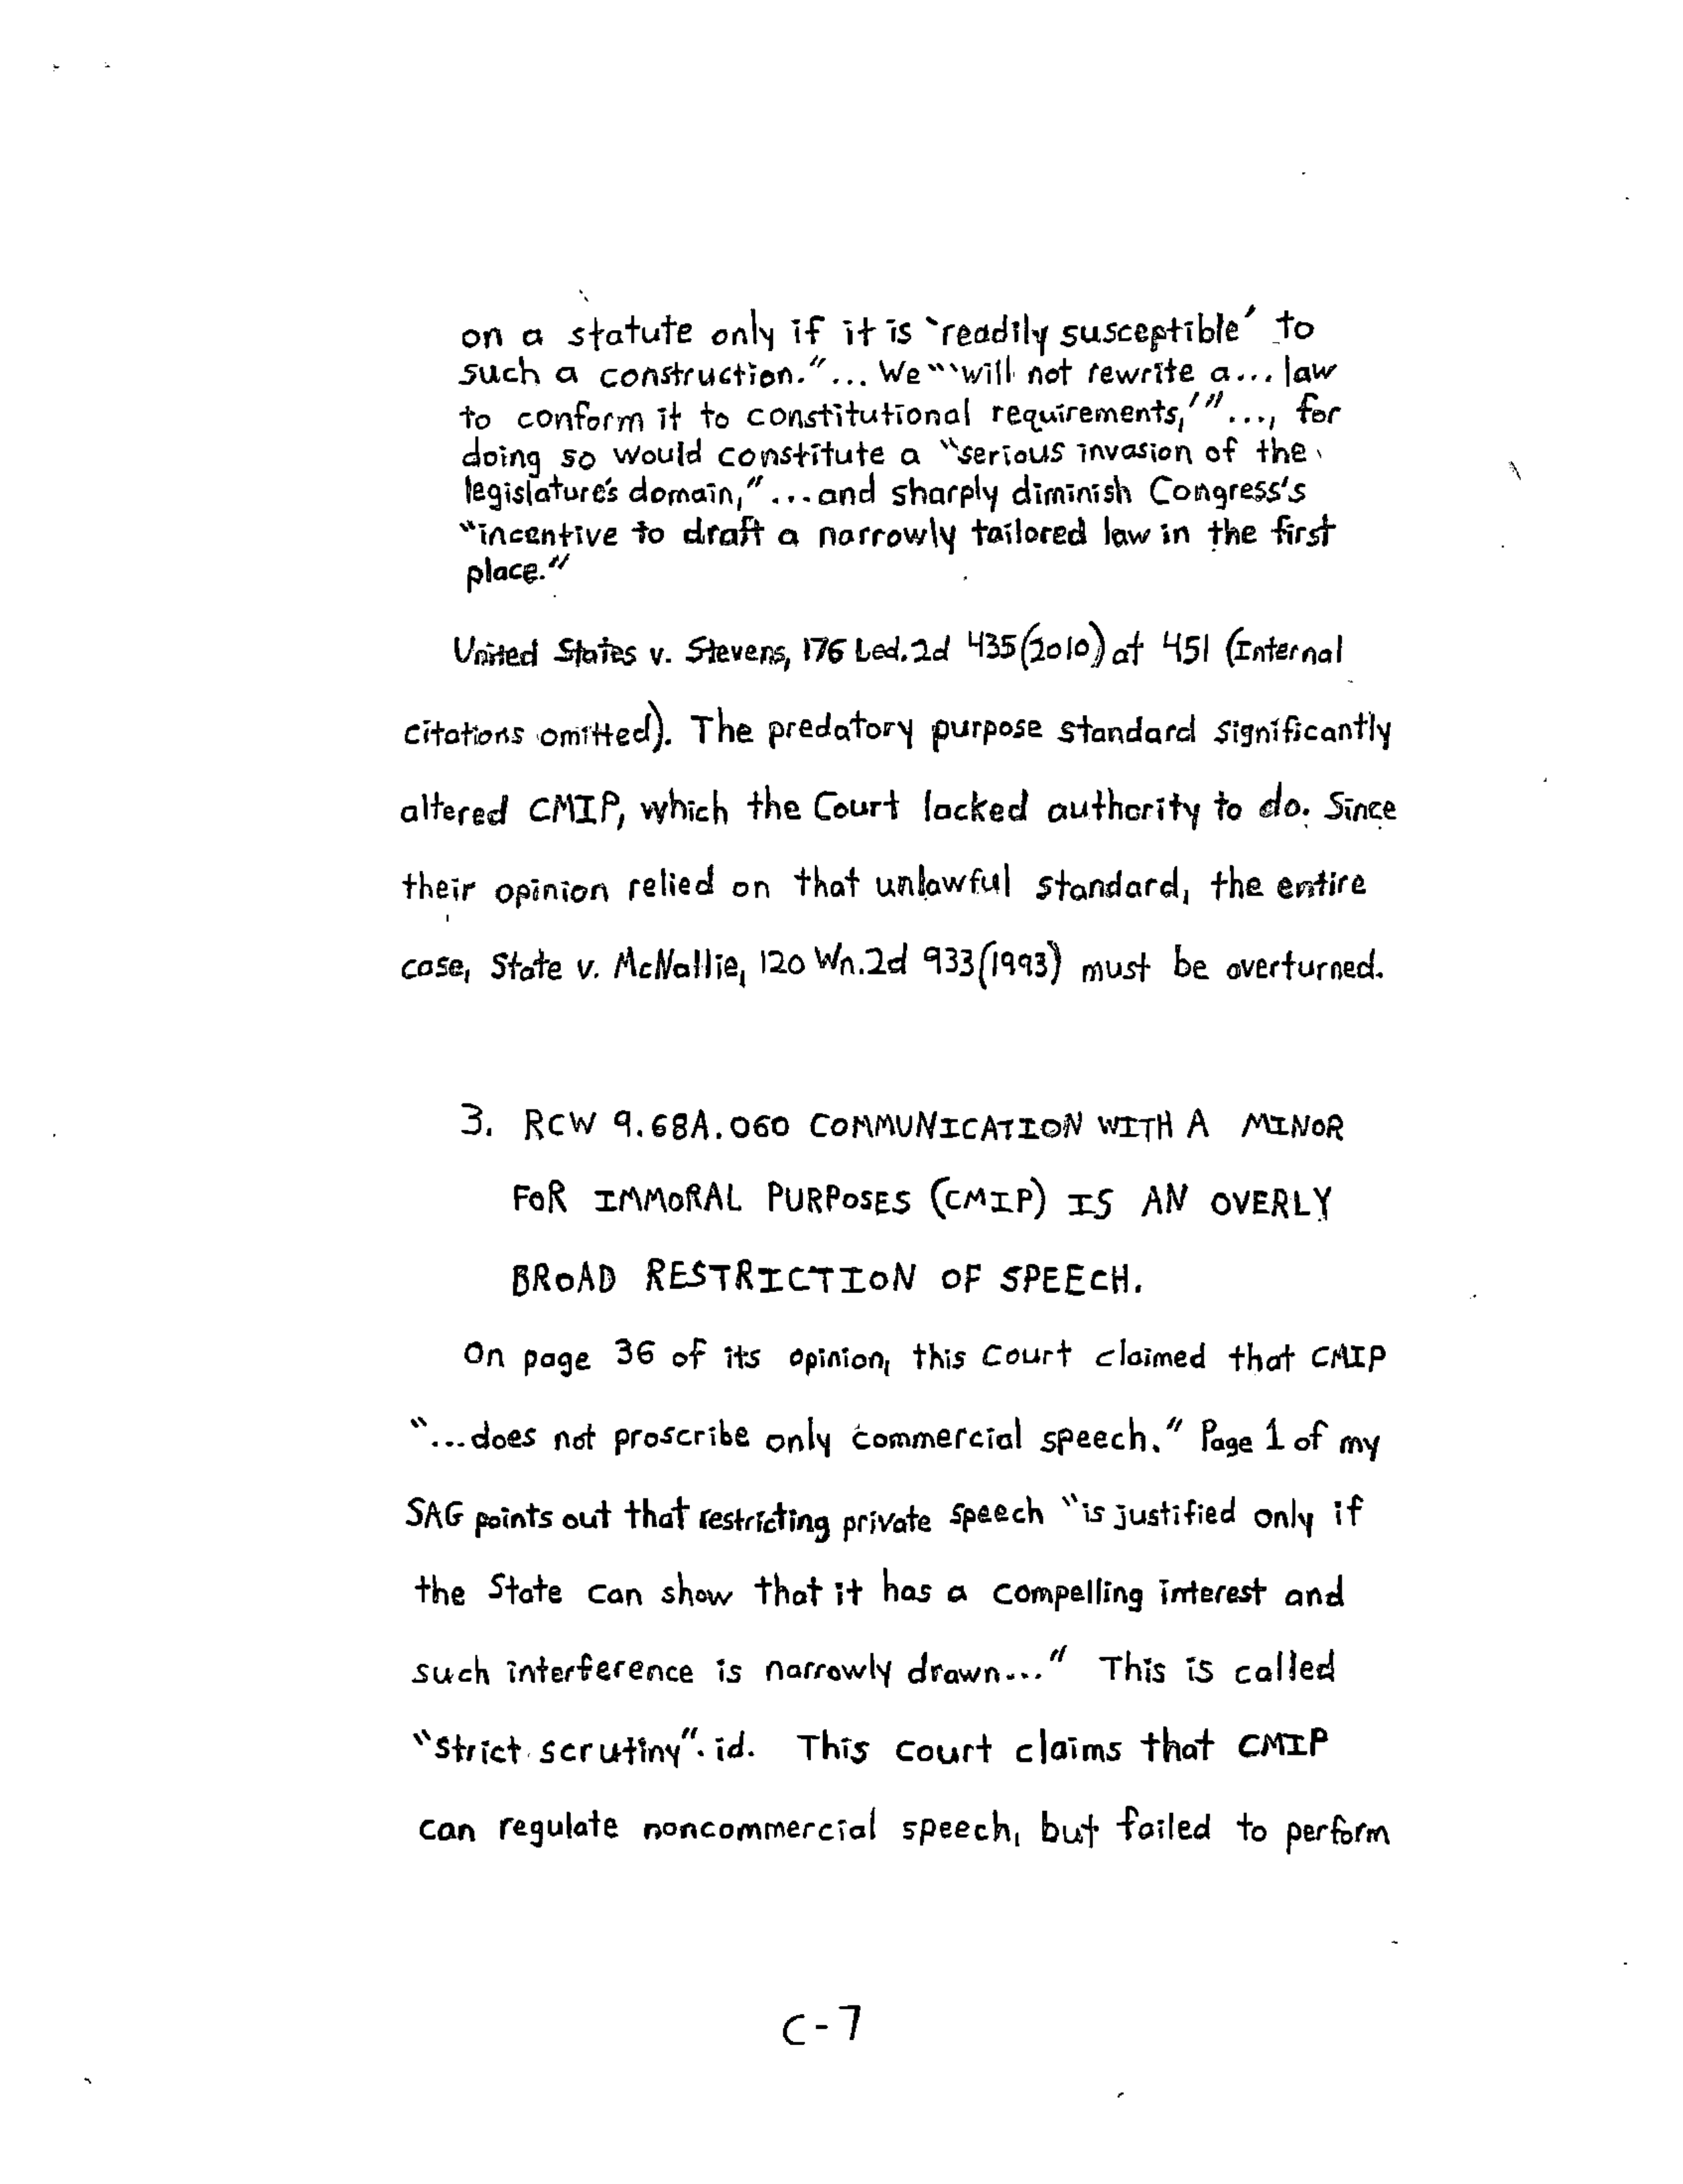 on a statute only if it is `readily susceptible' to
such a construction."... We "'"will not rewrite a... law
to conform it to constitutional requirements,'"..., for
doing so would constitute a "serious invasion of the
legislature's domain,"...and sharply diminish Congress's
"incentive to draft a narrowly tailored law in the first
place."
United States v. Stevens, 176 Led.2d 435(2010) at 451 (Internal
citations omitted). The predatory purpose standard significantly
altered CMIP, which the Court lacked authority to do. Since
their opinion relied on that unlawful standard, the entire
case, State v. McNallie, 120 Wn.2d 933(1993) must be overturned.
3. RCW 9.68A.060 COMMUNICATION WITH A MINOR
FOR IMMORAL PURPOSES (CMIP) IS AN OVERLY
BROAD RESTRICTION OF SPEECH.
On page 36 of its opinion, this Court claimed that CMIP
"...does not proscribe only commercial speech." Page 1 of my
SAG points out that restricting private speech "is justified only if
the State can show that it has a compelling interest and
such interference is narrowly drawn..." This is called
"strict scrutiny". id. This Court claims that CMIP
can regulate noncommercial speech, but failed to perform
C-7